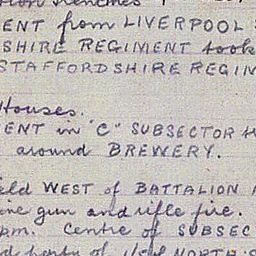 trenches
ENT from LIVERPOOL
SHIRE REGIMENT took
STAFFORDSHIRE REGIM
Houses.
ENT in "C" SUBSECTOR
around BREWERY.
WEST of BATTALION
gun and rifle fire.
pm. Centre of SUBSEC
of NORTH